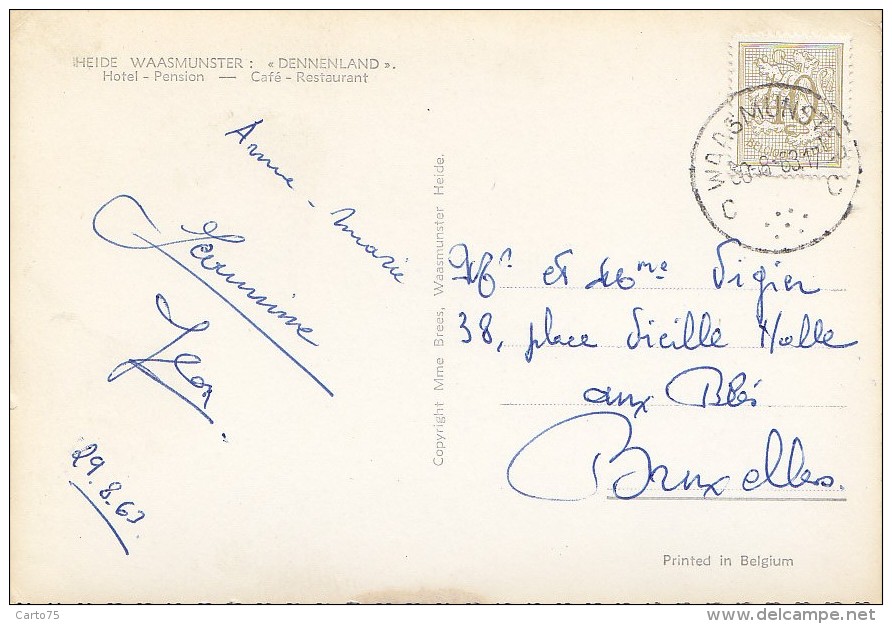 HEIDE WAASMUNSTER : « DENNENLAND ».
Hotel - Pension — Café - Restaurant
Anne - Marie
Jeannine
Jean
29.8.63
Copyright Mme Brees, Waasmunster Heide.
C WAASMUNSTER C
30-8-63.17
Mr et Mme Vigier
38, place Vieille Halle
aux Blés
Bruxelles.
Printed in Belgium
Carto75
www.delcampe.net